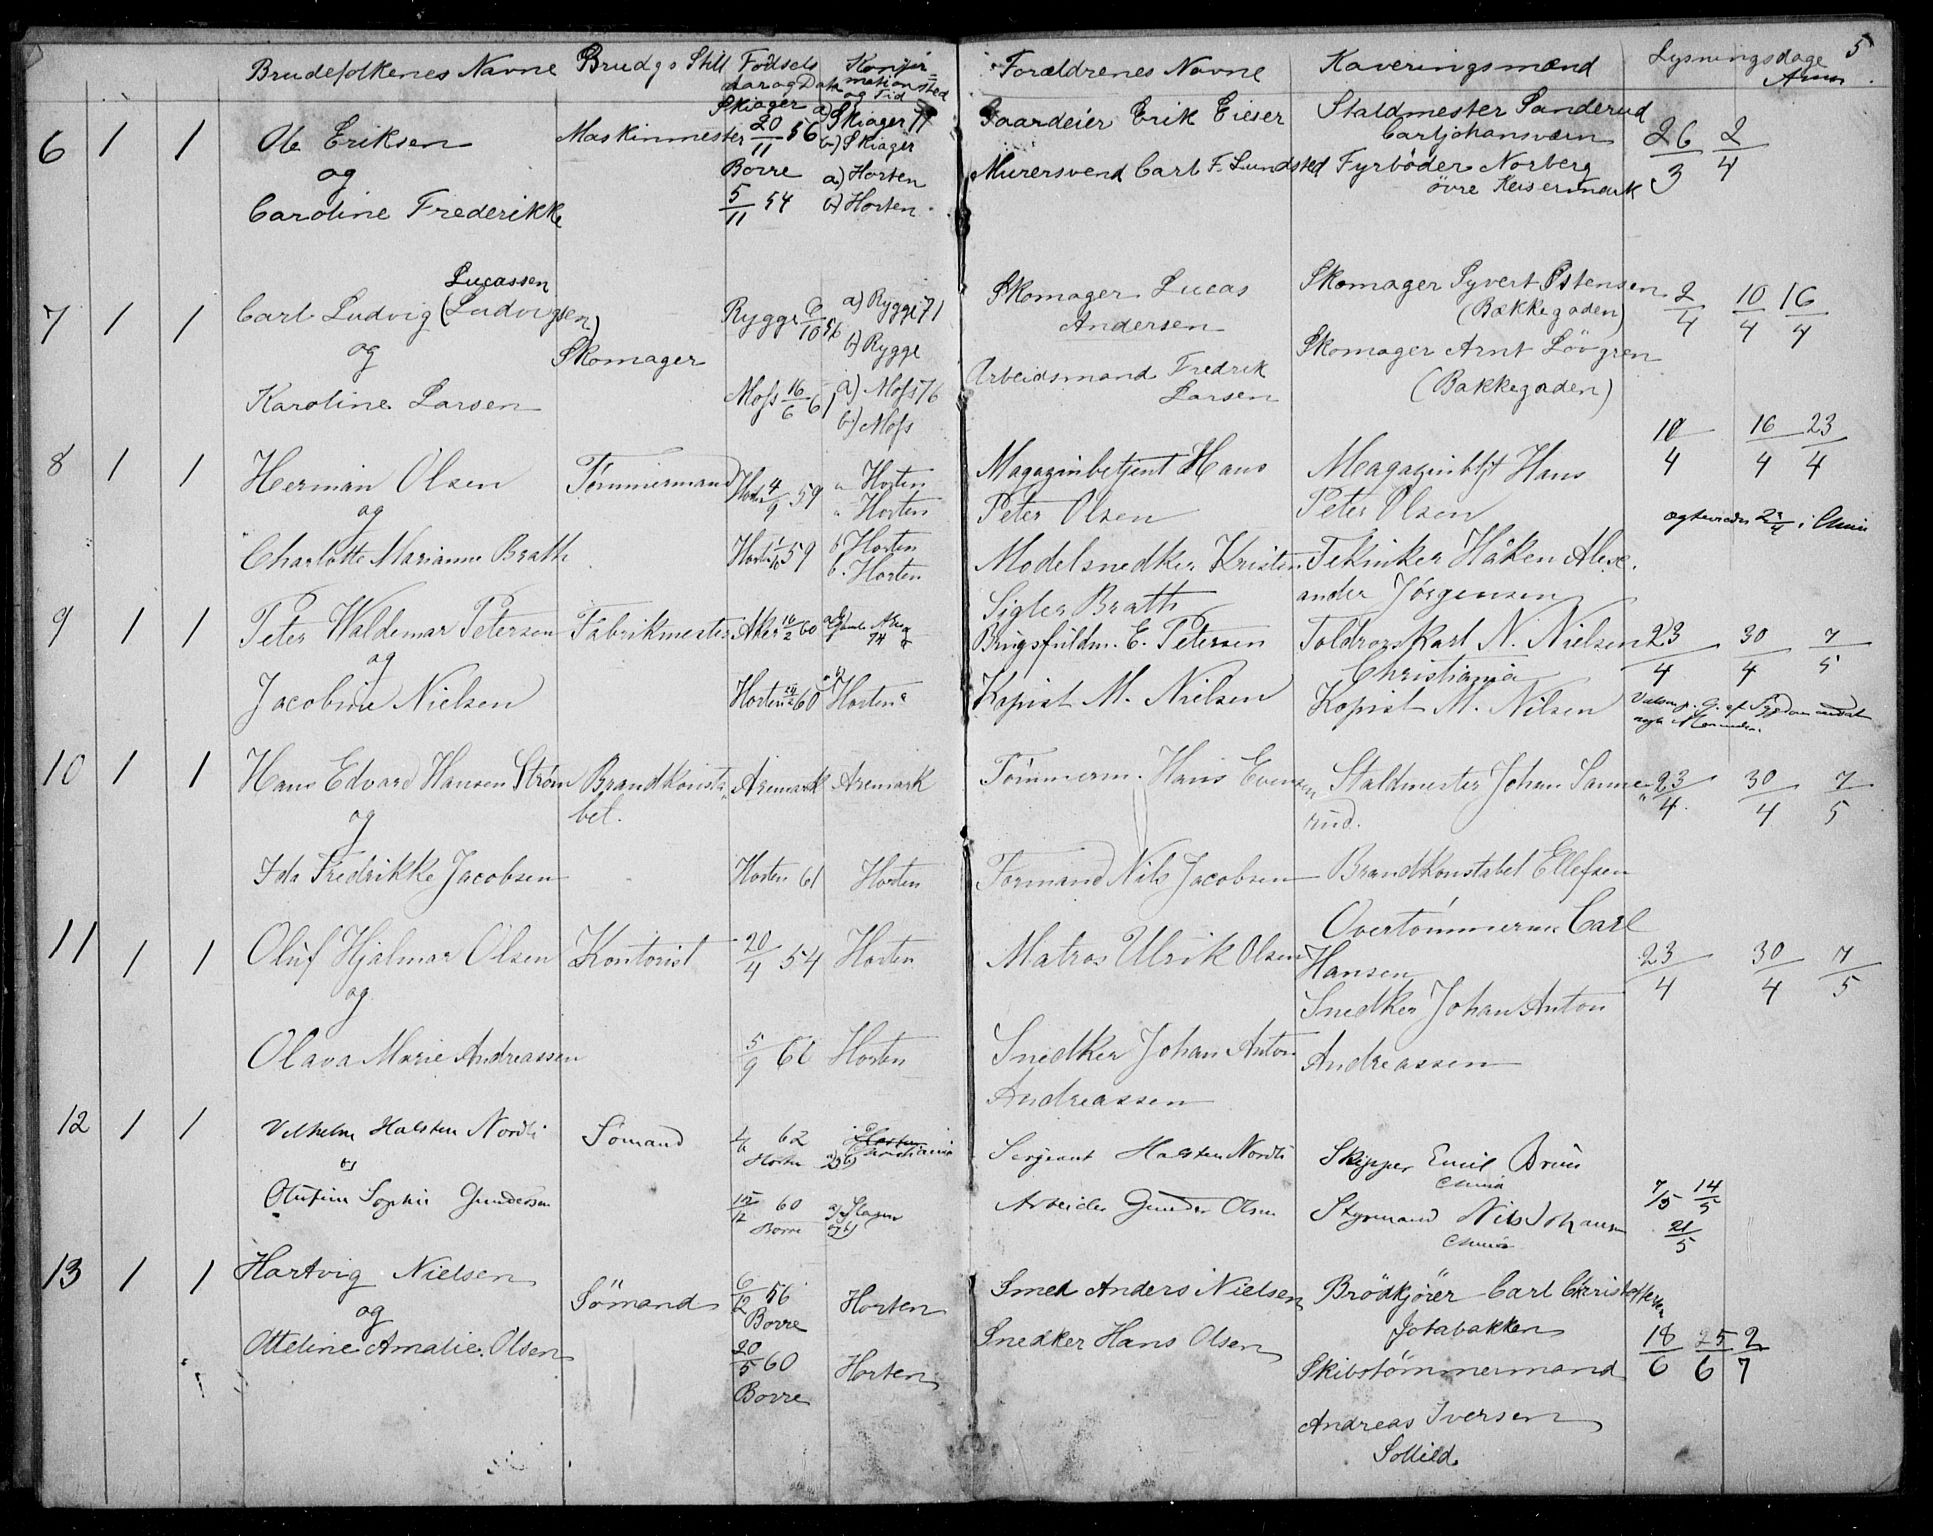 Brudefolkenes Navne Brudgs Still Födsels Aar og Data Konfirmationssted og Tid Forældrenes Navne Kaveringsmænd Lysningsdage 5
6 1 1 Ole Eriksen Maskinmester Skiager 20/11 56 a) Skiager 71 Gaardeier Erik Eieser Staldmester Sanderud 26/3 2/4
b) Skiager Carljohansværn
og Borre a) Horten Murersvend Carl F. Lundsted Fyrböder Norberg
Caroline Frederikke 5/11 54 b) Horten övre Keisermark
Lucassen
7 1 1 Carl Ludvig (Ludvigsen) Rygge 6/10 56 a) Rygge 71 Skomager Lucas Skomager Syvert Östensen 2/4 10/4 16/4
Andersen (Bakkegaden)
og Skomager b) Rygge Skomager Arnt Lövgren
Karoline Larsen Moss 16/6 61 a) Moss 76 Arbeidsmand Fredrik (Bakkegaden)
b) Moss Larsen
8 1 1 Herman Olsen Tømmermand Horten 4/9 59 a Horten Magazinbetjent Hans Magazinbtjt Hans 10/4 16/4 23/4
og " Horten Peter Olsen Peter Olsen
Charlotte Marianne Brath 59 b Horten Modelsnedker Kristen Tekniker Håken Alex-
b. Horten Sigler Brath ander Jørgensen
9 1 1 Peter Waldemar Petersen Fabrikmester Aker 16/2 60 Brugsfuldm. E. Petersen Karl N. Nielsen 23/4 30/4 7/5
og Christiania
Jacobine Nielsen Horten 60 Horten Kopist M. Nielsen Kopist M. Nilsen
10 1 1 Hans Edvard Hansen Strøm Brandkonsta- Aremark Aremark Tömmerm. Hans Evensen Staldmester Johan Sanne- 23/4 30/4 7/5
og bel. rud.
Ida Fredrikke Jacobsen Horten 61 Horten Formand Nils Jacobsen Brandkonstabel Ellefsen
11 1 1 Oluf Hjalmar Olsen Kontorist 20/4 54 Horten Matros Ulrik Olsen Overtömmerm. Carl 23/4 30/4 7/5
og Hansen
Snedker Johan Anton
Olava Marie Andreassen 5/9 61 Horten Snedker Johan Anton Andreassen
Andreassen
12 1 1 Vilhelm Halsten Nordli Sömand 62 Horten Christiania Sergeant Halsten Nordli Skipper Emil Bruu 7/5 14/5
og Chnia
Olufine Sophie Gundersen 60 Borre Arbeider Gunder Olsen Styrmand Nils Johansen 21/5
Chnia
13 1 1 Hartvig Nielsen Sömand 6/12 56 Horten Smed Anders Nielsen Brödkjörer Carl Christoffersen
og Borre Jotabakken
Otteline Amalie Olsen 20/5 60 Horten Snedker Hans Olsen Skibstömmermand 18/6 25/6 2/7
Borre Andreas Iversen
Sollild